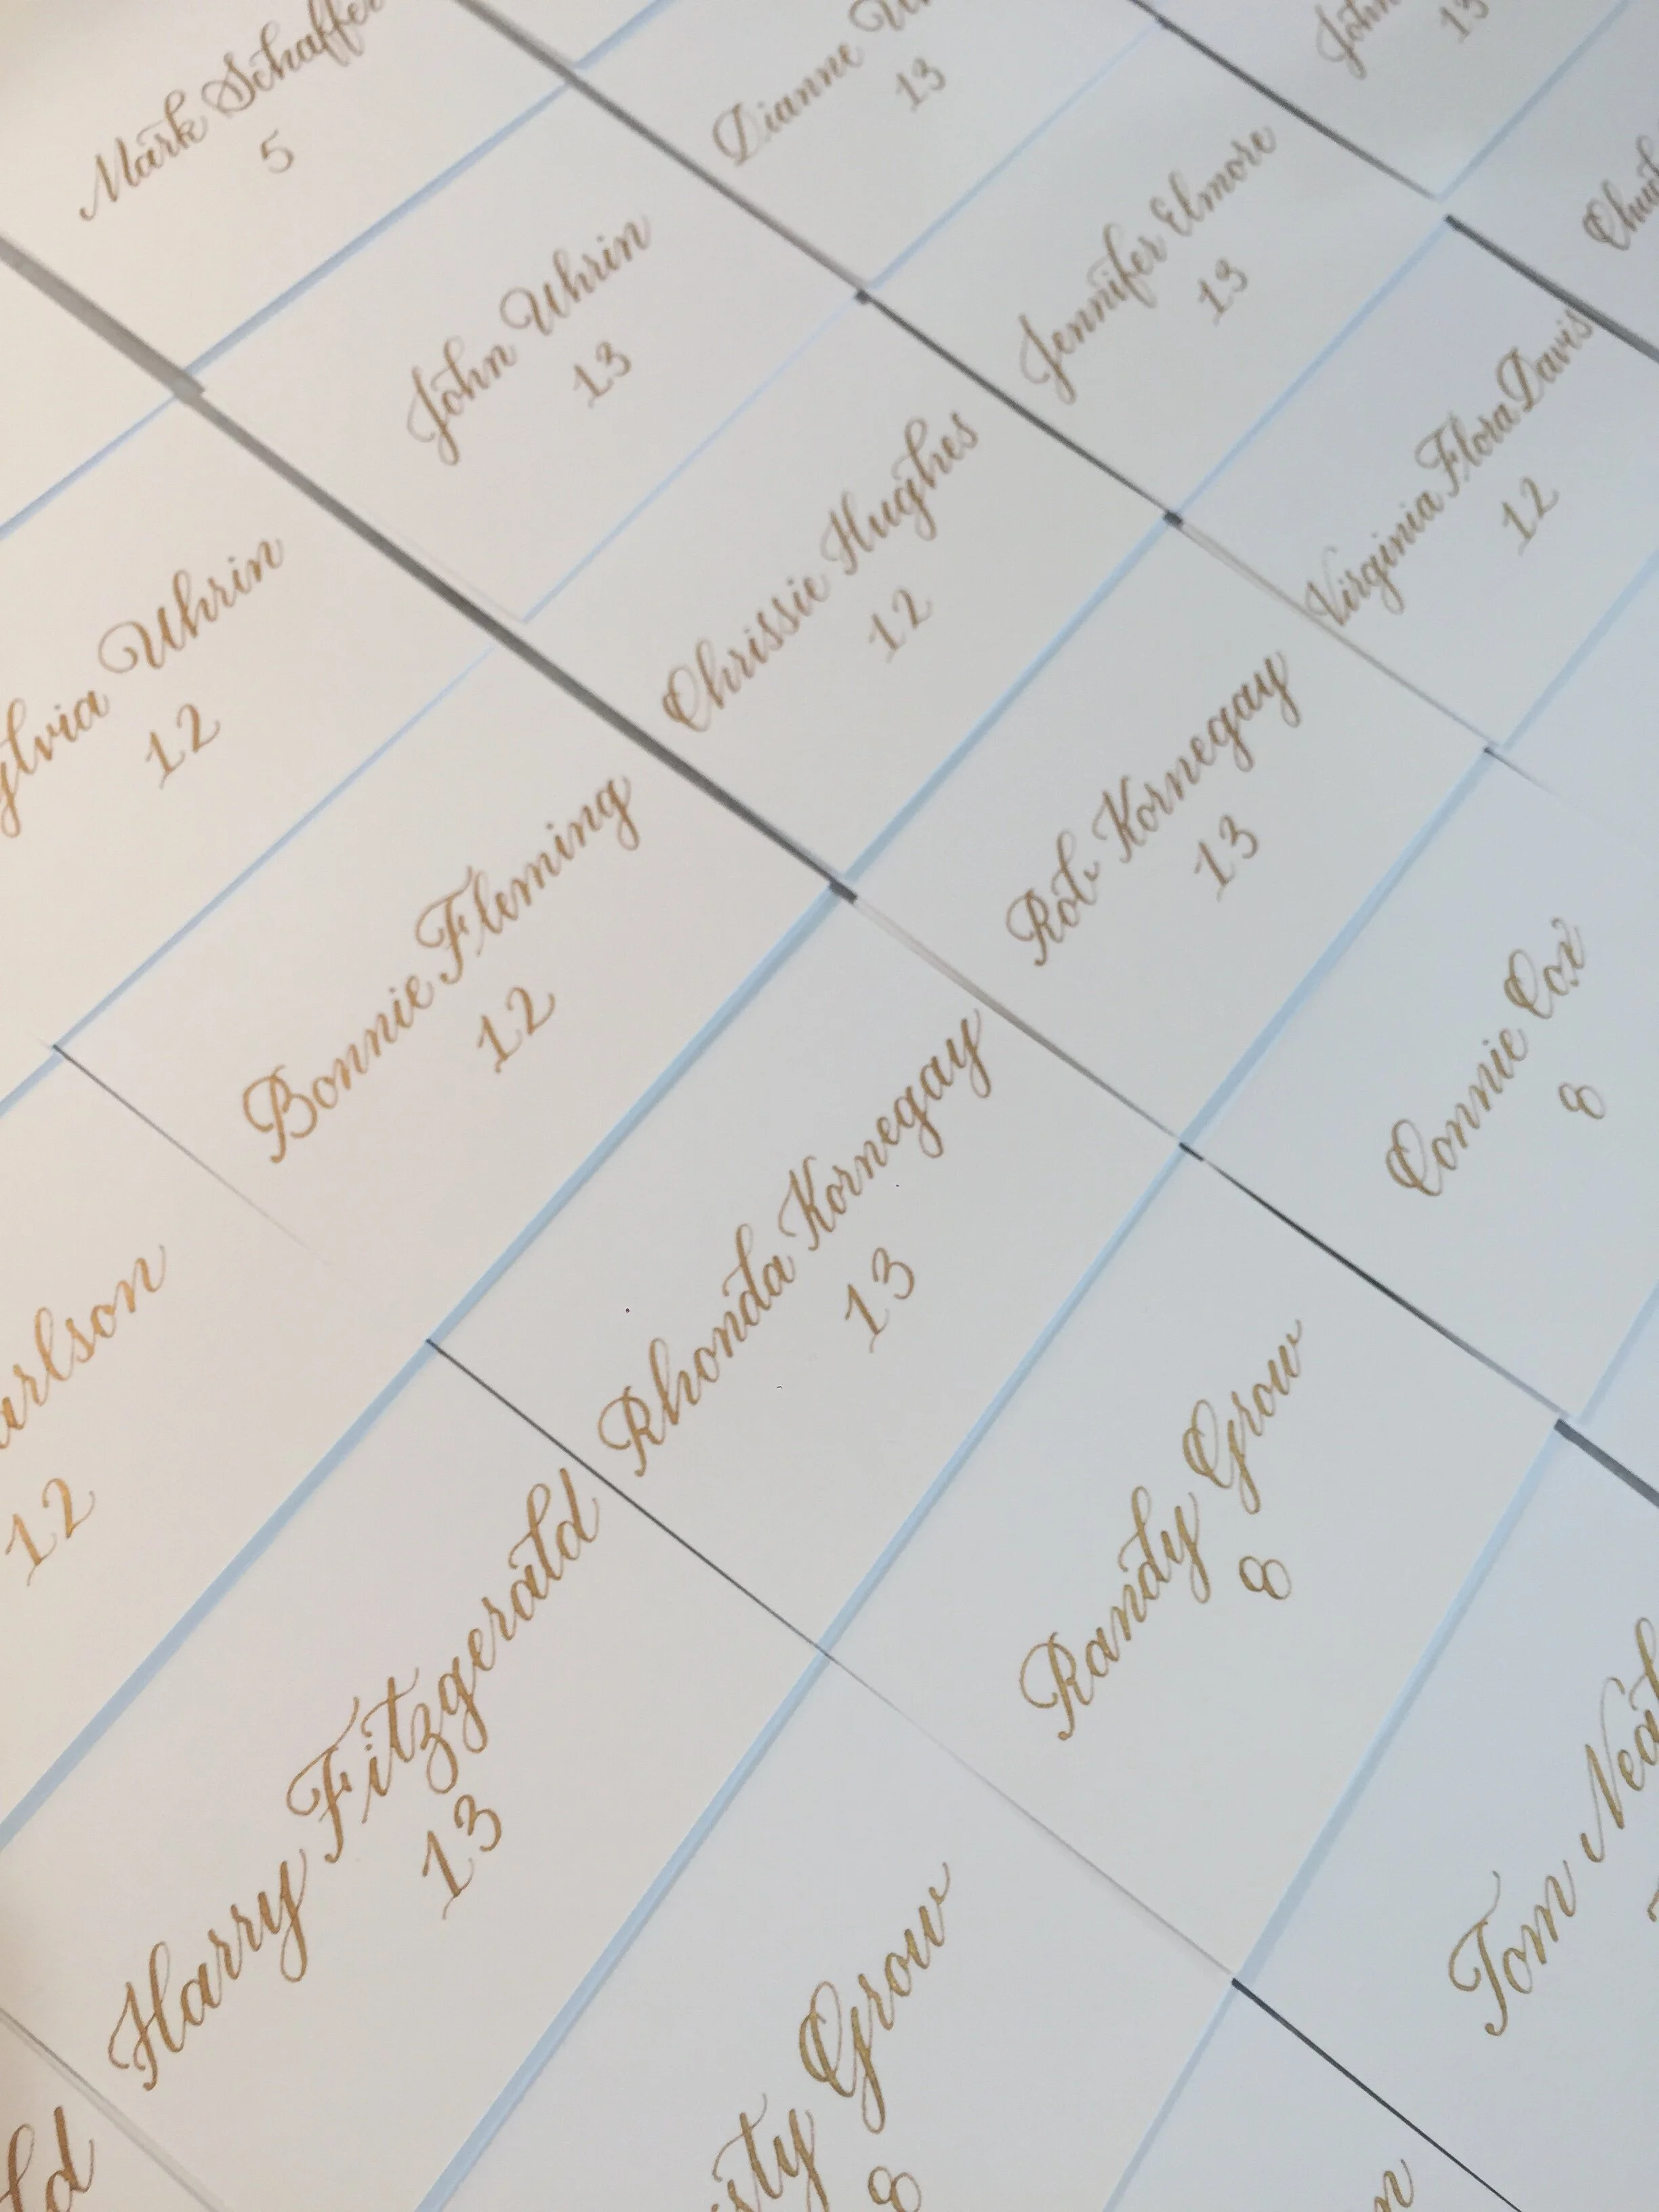 Mark Schaffer
5
Dianne
13
John
13
John Uhrin
13
Jennifer Elmore
13
Uhrin
12
Chrissie Hughes
12
Virginia Flora Davis
12
Bonnie Fleming
12
Rob Kornegay
13
12
Rhonda Kornegay
13
Connie Cox
8
Harry Fitzgerald
13
Randy Grow
8
Grow
8
Tom